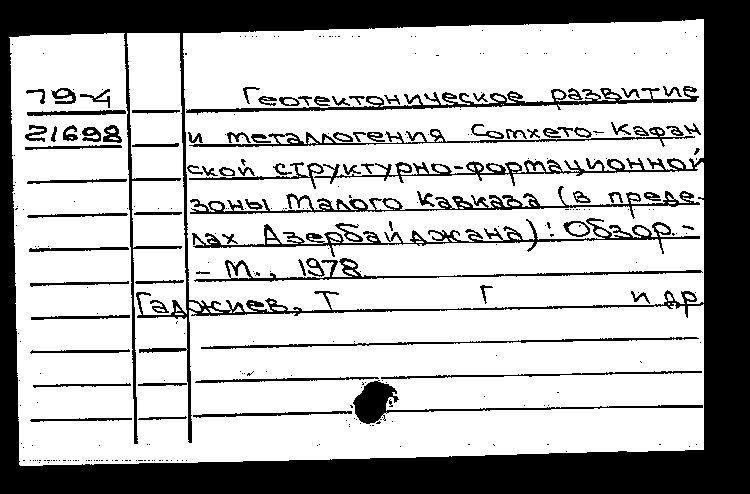 79-4 Геотектоническое развитие
21698 и металлогения Сомхето-Кафан
ской структурно-формационной
зоны Малого Кавказа (в преде-
лах Азербайджана): Обзор.-
- М., 1978
Гаджиев, Т Г и др